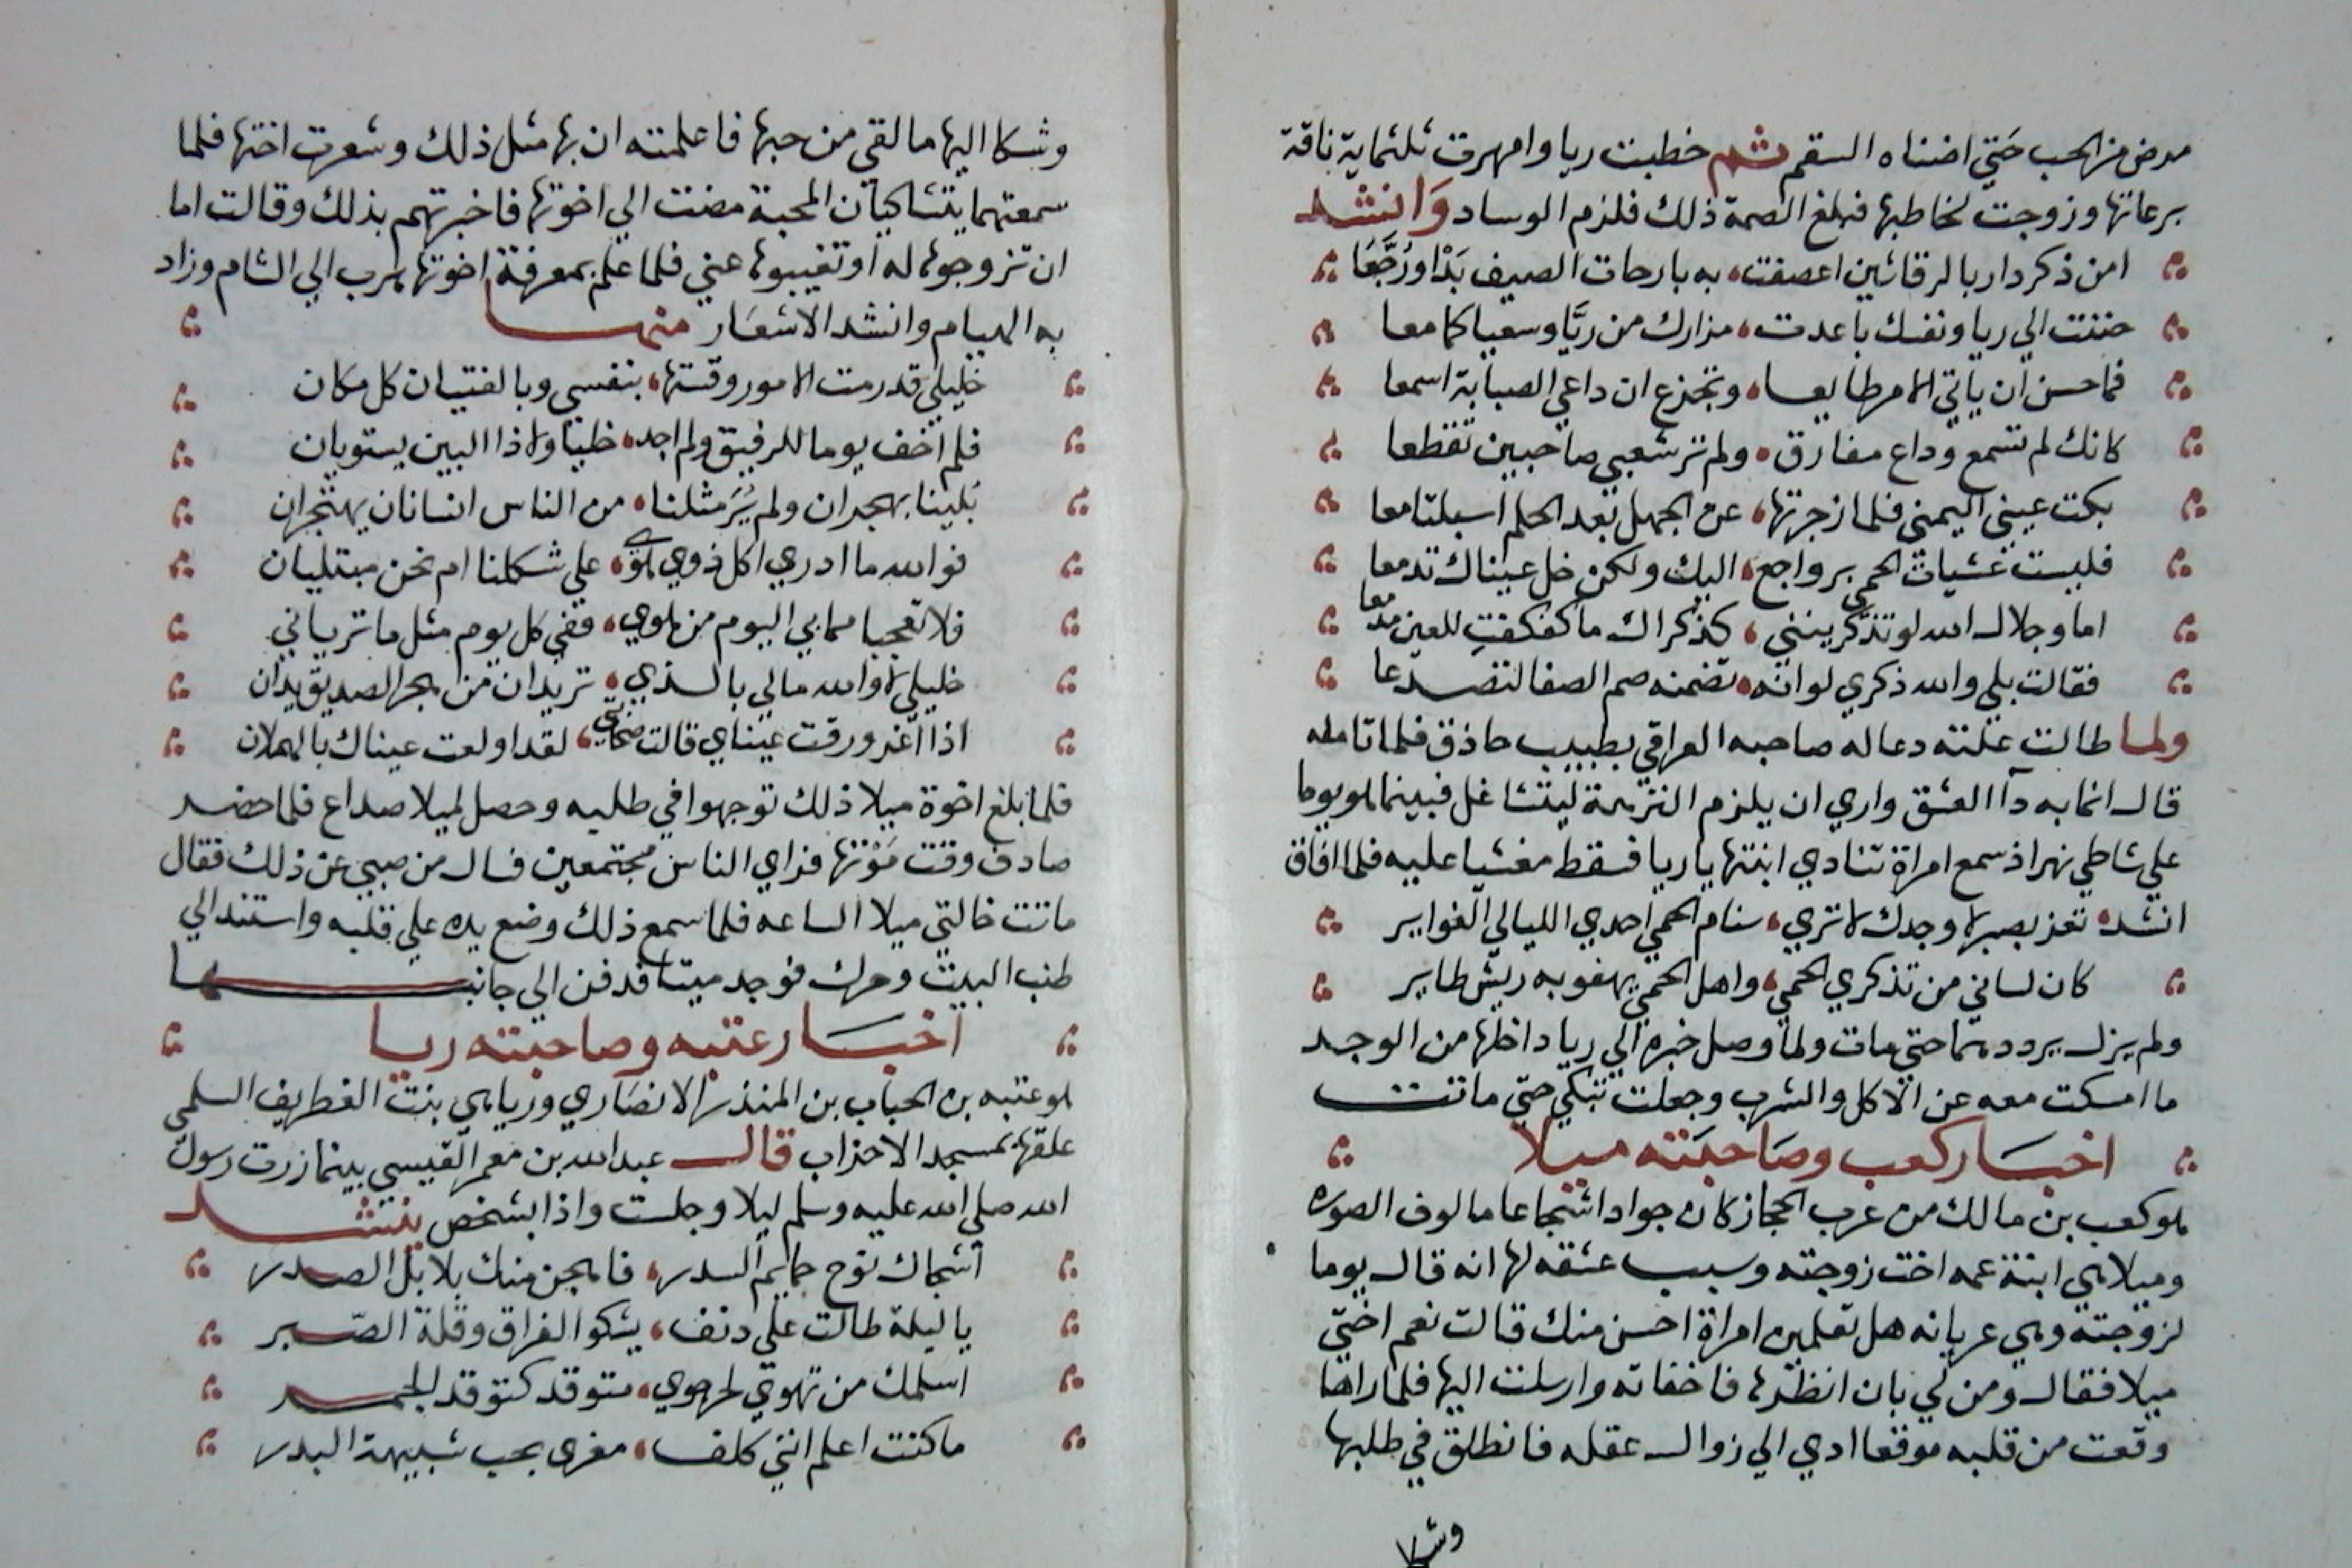 مرض من الحب حتي اضناه السقم ثم خطبت ريا وامهرت ثلثماية ناقة
برعاتها وزوجت لخاطبها فبلغ الصمة ذلك فلزم الوساد وانشد
امن ذكر دار بالرقاشين اعصفت به بارحات الصيف بدا ورجعا
حننت الي ريا ونفسك باعدت مزارك من ريا وسعياكما معا
فما حسن ان ياتي الامر طايعا وتجزع ان داعي الصبابة اسمعا
كانك لم تسمع وداع مفارق ولم تر شعبي صاحبين تقطعا
بكت عيني اليمني فلما زجرتها عن الجهل بعد الحلم اسبلتا معا
فليست عشيات الحمي برواجع اليك ولكن خل عيناك تدمعا
اما وجلال الله لو تذكرينني كذكراك ما كفكفت للعين مدمعا
فقالت بلي والله ذكري لو انه تضمنه صم الصفا لتصدعا
ولما طالت علته دعا له صاحبه العراقي بطبيب حاذق فلما تامله
قال انما به دآ العشق واري ان يلزم النزهة ليتشاغل فبينما هو يوما
علي شاطي نهر اذ سمع امراة تنادي ابنتها يا ريا فسقط مغشيا عليه فلما افاق
انشد تعز بصبر لا وجدك لا تري سنام الحمي احدي الليالي الغواير
كان لساني من تذكري الحمي واهل الحمي يهفو به ريش طاير
ولم يزل يرددهما حتي مات ولما وصل خبره الي ريا داخلها من الوجد
ما امسكت معه عن الاكل والشرب وجعلت تبكي حتي ماتت
اخبار كعب وصاحبته ميلا
هو كعب بن مالك من عرب الحجاز كان جوادا شجاعا مالوف الصوره
وميلا هي ابنة عمه اخت زوجته وسبب عشقه لها انه قال يوما
لزوجته وهي عريانه هل تعلمين امراة احسن منك قالت نعم اختي
ميلا فقال ومن لي بان انظرها فاخفاته وارسلت اليها فلما راها
وقعت من قلبه موقعا ادي الي زوال عقله فانطلق في طلبها
وشكا
وشكا اليها ما لقي من حبها فاعلمته ان بها مثل ذلك وشعرت اختها فلما
سمعتهما يتشاكيان المحبة مضت الي اخوتها فاخبرتهم بذلك وقالت اما
ان تزوجوها له او تغيبوها عني فلما علم بمعرفة اخوتها هرب الي الشام وزاد
به الهيام وانشد الاشعار منها
خليلي قد رمت الامور وقستها بنفسي وبالفتيان كل مكان
فلم اخف يوما للرفيق ولم اجد خليا ولا ذا البين يستويان
بلينا بهجران ولم ير مثلنا من الناس انسانان يهتجران
فوالله ما ادري اكل ذوي هوي علي شكلنا ام نحن مبتليان
فلا تعجبا مما بي اليوم من هوي ففي كل يوم مثل ما ترياني
خليلي لا والله مالي بالذي تريدان من هجر الصديق يدان
اذا اغرورقت عيناي قالت صحابتي لقد اولعت عيناك بالهملان
فلما بلغ اخوة ميلا ذلك توجهوا في طلبه وحصل لميلا صداع فلما حضر
صادف وقت موتها فراي الناس مجتمعين فسال من صبي عن ذلك فقال
ماتت خالتي ميلا الساعه فلما سمع ذلك وضع يده علي قلبه واستند الي
طنب البيت وحرك فوجد ميتا فدفن الي جانبها
اخبار عتبه وصاحبته ريا
هو عتبه بن الحباب بن المنذر الانصاري وريا هي بنت الغطريف السلمي
علقها بمسجد الاحزاب قال عبد الله بن معمر القيسي بينما زرت رسول
الله صلي الله عليه وسلم ليلا وجلست واذا بشخص ينشد
أشجاك نوح حمايم السدر فاهجن منك بلابل الصدر
يا ليلة طالت علي دنف يشكو الفراق وقلة الصبر
اسلمك من تهوي لحر جوي متوقد كتوقد الجمر
ما كنت اعلم انني كلف مغري بحب شبيهة البدر